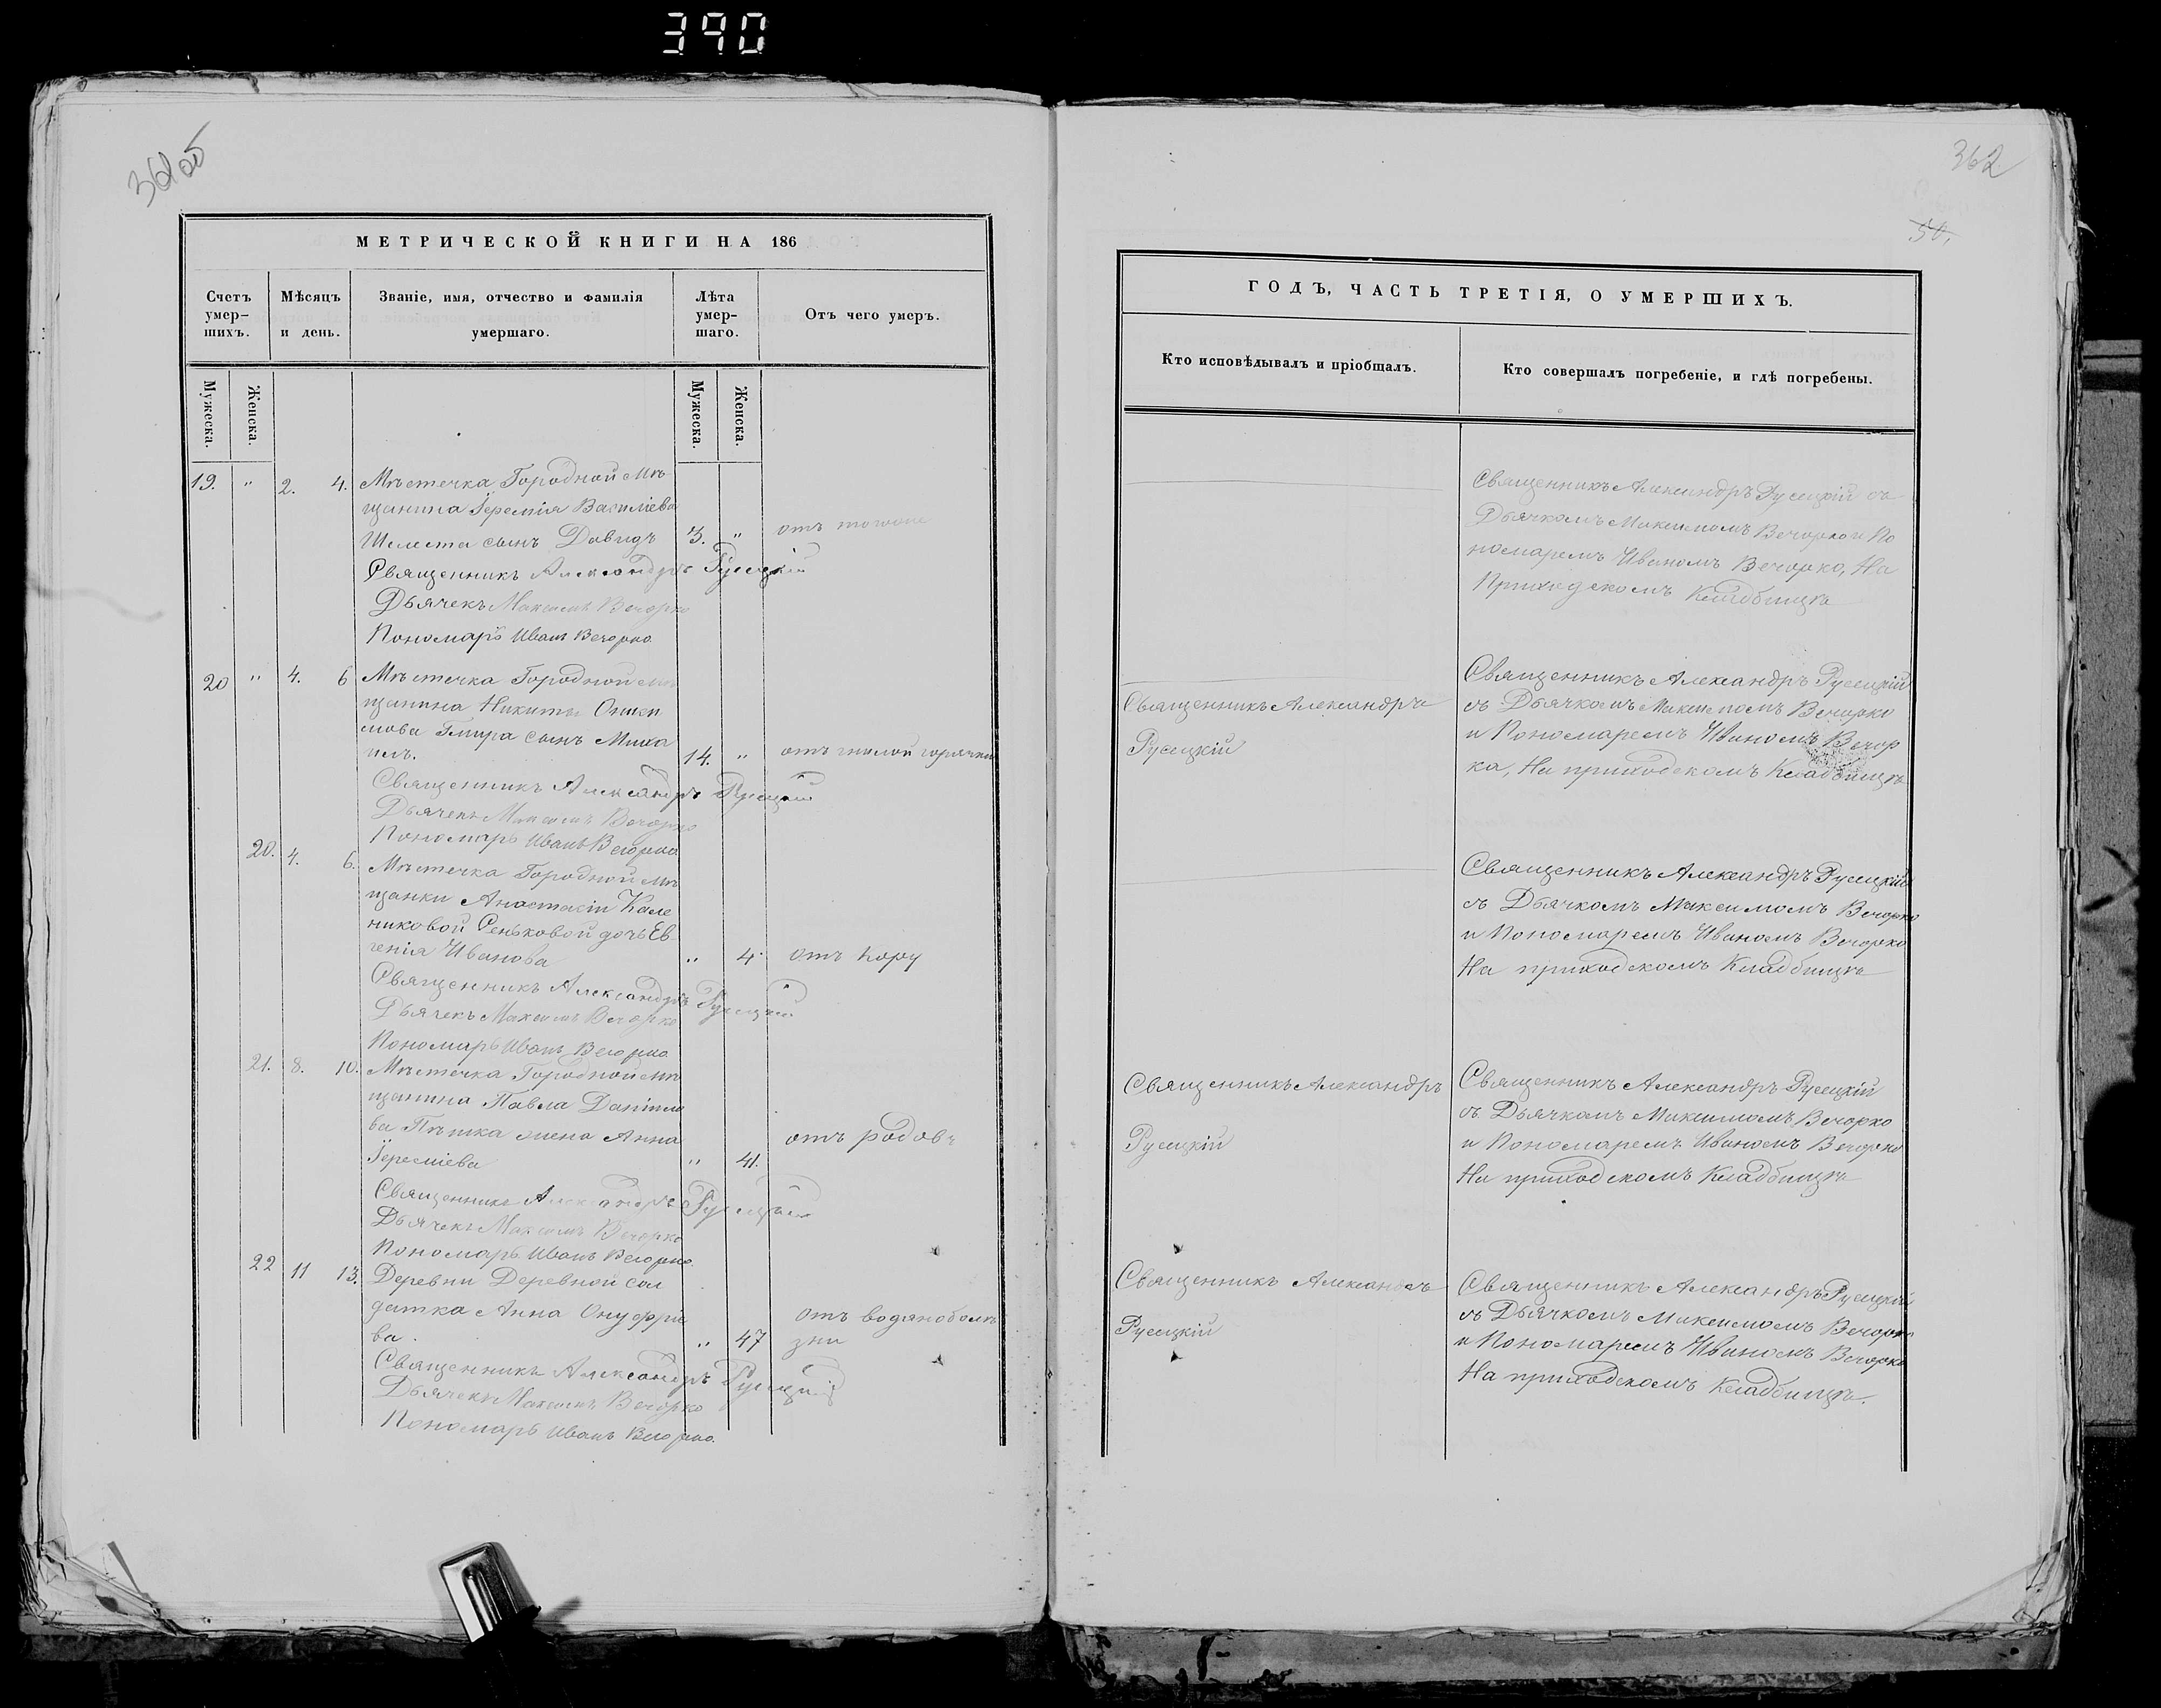 390
361об
МЕТРИЧЕСКОЙ КНИГИ НА 186
Счетъ умер-шихъ.
Мѣсяцъ и день.
Званіе, имя, отчество и фамилія умершаго.
Лѣта умер-шаго.
Отъ чего умеръ.
Мужеска.
Женска.
Мужеска.
Женска.
19. " 2. 4. Мѣстечка Городной мѣ
щанина Іереміи Василіева
Шелеста сынъ Давидъ 3. " отъ
Священникъ Александръ Русецкій
Дьячекъ Максимъ Вечорко
Пономарь Иванъ Вечорко.
20 " 4. 6 Мѣстечка Городной мѣ
щанина Никиты Ониси
мова сынъ Миха
илъ. 14. " отъ гнилой горячки
Священникъ Александръ Русецкій
Дьячекъ Максимъ Вечорко
Пономарь Иванъ Вечорко
20. 4. 6. Мѣстечка Городной мѣ
щанки Анастасіи Кале
никовой Сеньковой дочь Ев
генія Иванова " 4 отъ кору
Священникъ Александръ Русецкій
Дьячекъ Максимъ Вечорко
Пономарь Иванъ Вечорко.
21. 8. 10. Мѣстечка Городной мѣ
щанина Павла Даніило
ва жена Анна отъ родовъ
Іереміева " 41.
Священникъ Александръ Русецкій
Дьячекъ Максимъ Вечорко
Пономарь Иванъ Вечорко.
22 11 13. Деревни Деревной сол
датка Анна Онуфріе отъ водяноболѣ
ва. " 47 зни
Священникъ Александръ Русецкій
Дьячекъ Максимъ Вечорко
Пономарь Иванъ Вечорко.
362
50,
ГОДЪ, ЧАСТЬ ТРЕТІЯ, О УМЕРШИХЪ.
Кто исповѣдывалъ и пріобщалъ.
Кто совершалъ погребеніе, и гдѣ погребены.
Священникъ Александръ Русецкій съ
Дьячкомъ Максимомъ Вечорко и По
номаремъ Иваномъ Вечорко, На
Приходскомъ Кладбищѣ
Священникъ Александръ
Русецкій
Священникъ Александръ Русецкій
съ Дьячкомъ Максимомъ Вечорко
и Пономаремъ Иваномъ Вечор
ка, На приходскомъ Кладбищѣ
Священникъ Александръ Русецкій
съ Дьячкомъ Максимомъ Вечорко
и Пономаремъ Иваномъ Вечорко
На приходскомъ Кладбищѣ
Священникъ Александръ
Русецкій
Священникъ Александръ Русецкій
съ Дьячкомъ Максимомъ Вечорко
и Пономаремъ Иваномъ Вечорко
На приходскомъ Кладбищѣ
Священникъ Александръ
Русецкій
Священникъ Александръ Русецкій
съ Дьячкомъ Максимомъ Вечорко
и Пономаремъ Иваномъ Вечорко
На приходскомъ Кладбищѣ.